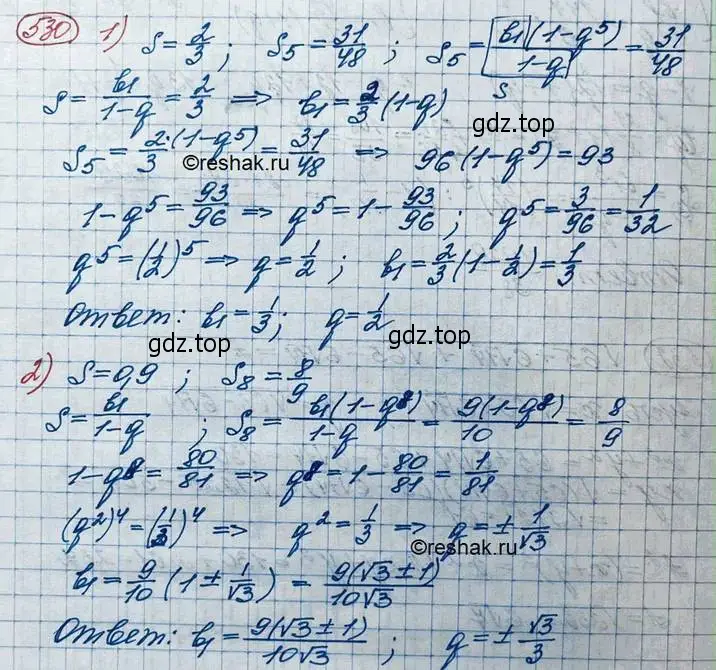 530 1) S = 2/3 ; S₅ = 31/48 ; S₅ = b₁(1-q⁵)/(1-q) = 31/48
S
S = b₁/(1-q) = 2/3 ⟹ b₁ = 2/3 (1-q)
gdz.top
S₅ = 2·(1-q⁵)/3 = 31/48 ⟹ 96(1-q⁵) = 93
©reshak.ru
1-q⁵ = 93/96 ⟹ q⁵ = 1 - 93/96 ; q⁵ = 3/96 = 1/32
q⁵ = (1/2)⁵ ⟹ q = 1/2 ; b₁ = 2/3 (1 - 1/2) = 1/3
Ответ: b₁ = 1/3 ; q = 1/2
gdz.top
2) S = 0,9 ; S₈ = 8/9
S = b₁/(1-q) ; S₈ = b₁(1-q⁸)/(1-q) = 9(1-q⁸)/10 = 8/9
1-q⁸ = 80/81 ⟹ q⁸ = 1 - 80/81 = 1/81
(q²)⁴ = (1/3)⁴ ⟹ q² = 1/3 ⟹ q = ± 1/√3
©reshak.ru
b₁ = 9/10 (1 ± 1/√3) = 9(√3 ± 1)/10√3
Ответ: b₁ = 9(√3 ± 1)/10√3 ; q = ± √3/3
gdz.top